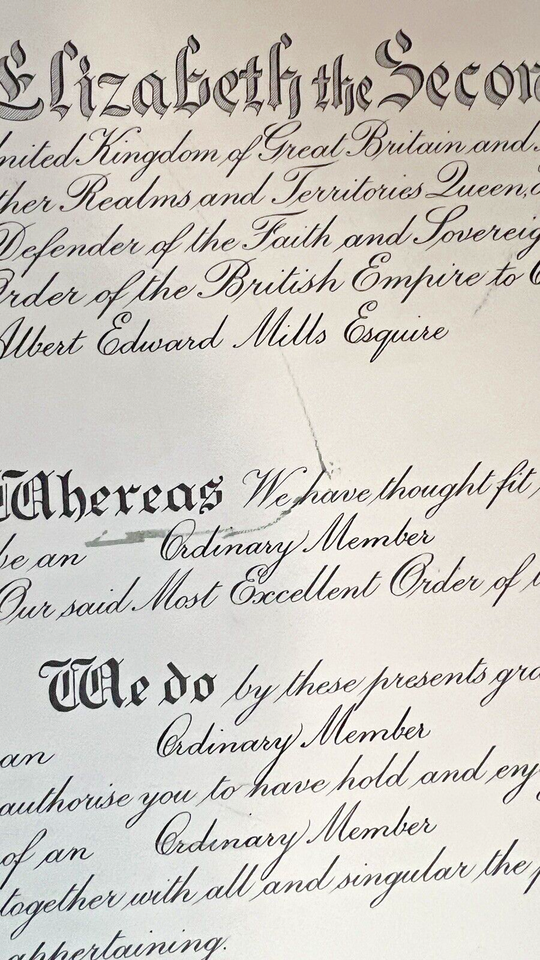 Elizabeth the Secon
nited Kingdom of Great Britain and
ther Realms and Territories Queen,
Defender of the Faith and Sovereig
rder of the British Empire to
Albert Edward Mills Esquire
Whereas We have thought fit
be an Ordinary Member
Our said Most Excellent Order of
We do by these presents gra
an Ordinary Member
authorise you to have hold and enj
of an Ordinary Member
together with all and singular the p
appertaining.